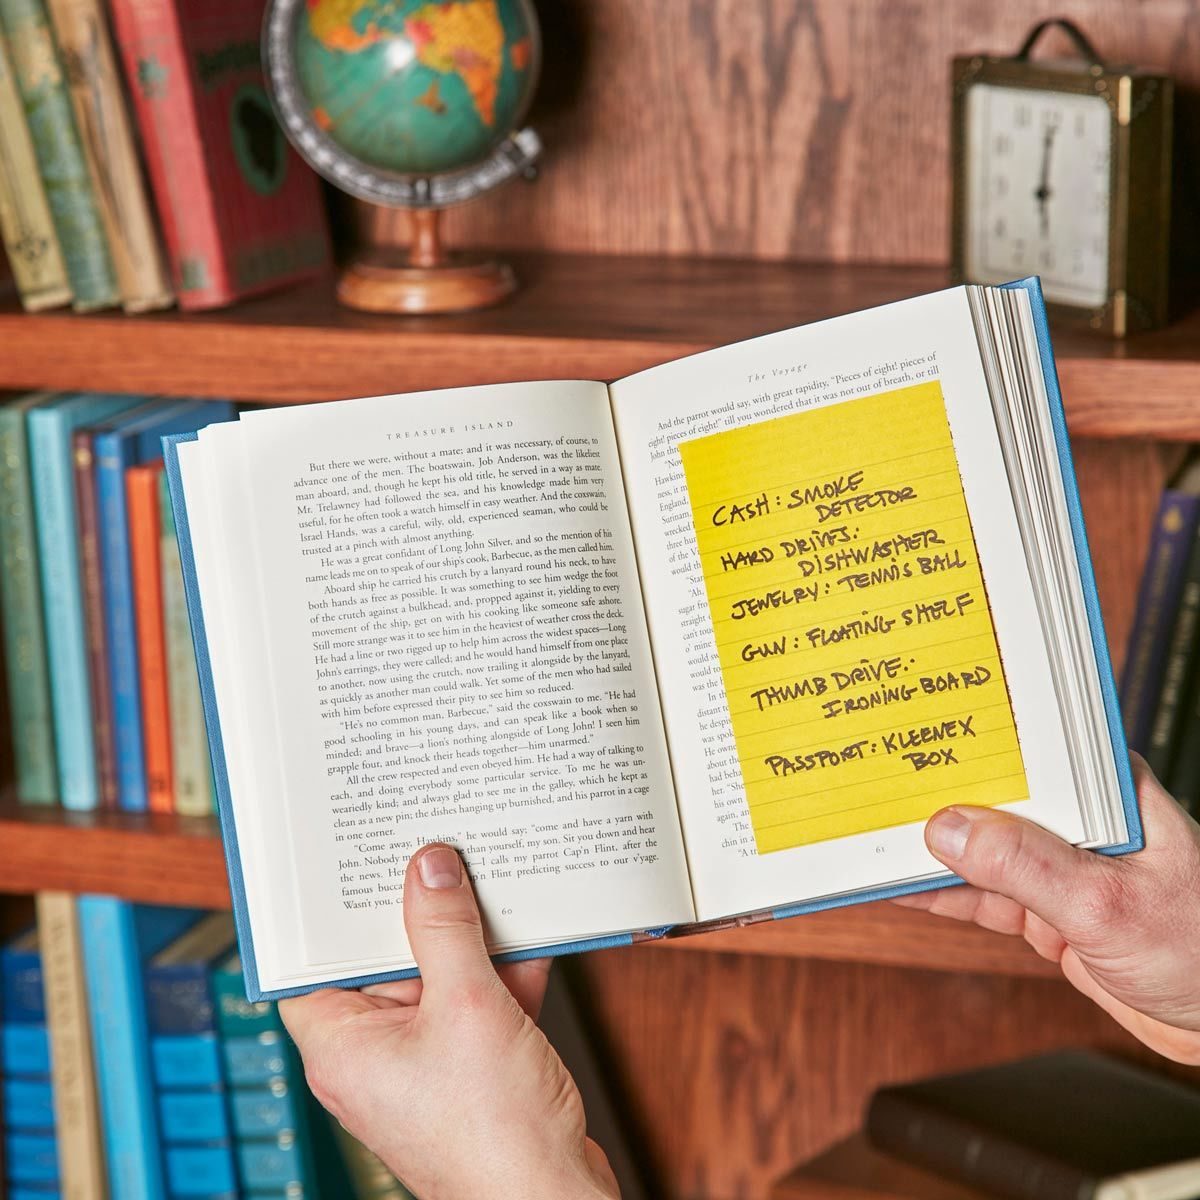 TREASURE ISLAND
But there we were, without a mate; and it was necessary, of course, to
advance one of the men. The boatswain, Job Anderson, was the likeliest
man aboard, and, though he kept his old title, he served in a way as mate.
Mr. Trelawney had followed the sea, and his knowledge made him very
useful, for he often took a watch himself in easy weather. And the coxswain,
Israel Hands, was a careful, wily, old, experienced seaman, who could be
trusted at a pinch with almost anything.
He was a great confidant of Long John Silver, and so the mention of his
name leads me on to speak of our ship's cook, Barbecue, as the men called him.
Aboard ship he carried his crutch by a lanyard round his neck, to have
both hands as free as possible. It was something to see him wedge the foot
of the crutch against a bulkhead, and, propped against it, yielding to every
movement of the ship, get on with his cooking like someone safe ashore.
Still more strange was it to see him in the heaviest of weather cross the deck.
He had a line or two rigged up to help him across the widest spaces—Long
John's earrings, they were called; and he would hand himself from one place
to another, now using the crutch, now trailing it alongside by the lanyard,
as quickly as another man could walk. Yet some of the men who had sailed
with him before expressed their pity to see him so reduced.
"He's no common man, Barbecue," said the coxswain to me. "He had
good schooling in his young days, and can speak like a book when so
minded; and brave—a lion's nothing alongside of Long John! I seen him
grapple four, and knock their heads together—him unarmed."
All the crew respected and even obeyed him. He had a way of talking to
each, and doing everybody some particular service. To me he was un-
weariedly kind; and always glad to see me in the galley, which he kept as
clean as a new pin; the dishes hanging up burnished, and his parrot in a cage
in one corner.
"Come away, Hawkins," he would say; "come and have a yarn with
John. Nobody more than yourself, my son. Sit you down and hear
the news. Here —I calls my parrot Cap'n Flint, after the
famous buccaneer Cap'n Flint predicting success to our v'yage.
Wasn't you,
60
The Voyage
And the parrot would say, with great rapidity, "Pieces of eight! pieces of
eight! pieces of eight!" till you wondered that it was not out of breath, or till
John
"Now
Hawkins
ness, it
England,
Surinam,
wrecked
three
of the
would
CASH: SMOKE
DETECTOR
HARD DRIVES:
DISHWASHER
JEWELRY: TENNIS BALL
GUN: FLOATING SHELF
THUMB DRIVE:
IRONING BOARD
PASSPORT: KLEENEX
BOX
61